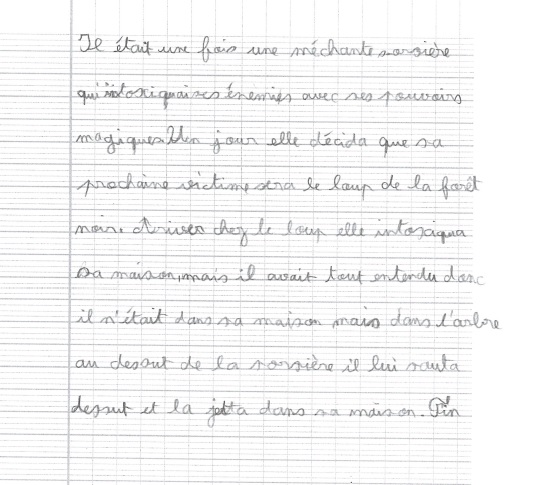 Il était une fois une méchante sorsière
qui intoxiquai ses énemies avec ses pouvoirs
magiques. Un jour elle décida que sa
prochaine victime sera le loup de la forêt
noir. Ariver chez le loup elle intoxiqua
sa maison, mais il avait tout entendu donc
il n'était dans sa maison mais dans l'arbre
au dessut de la sorsière il lui sauta
dessut et la jetta dans sa maison. Fin